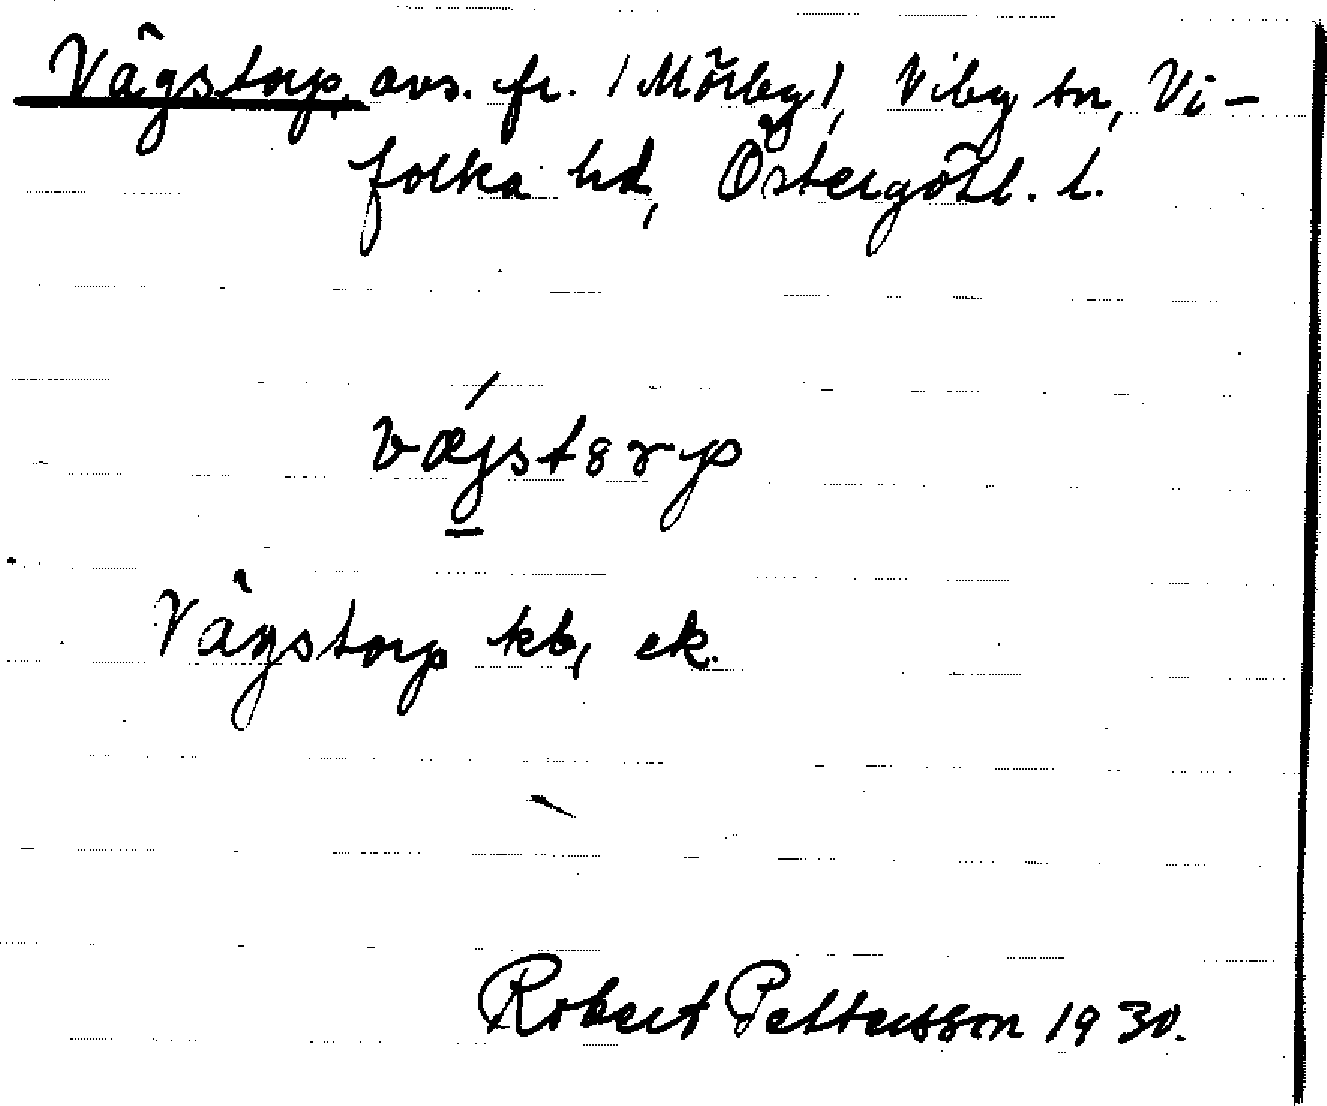 Vägstorp, avs. fr. /Mörby/, Viby sn, Vi-
folka hd, Östergötl. l.
væjstørp
Vägstorp kb, ek.
Robert Pettersson 1930.